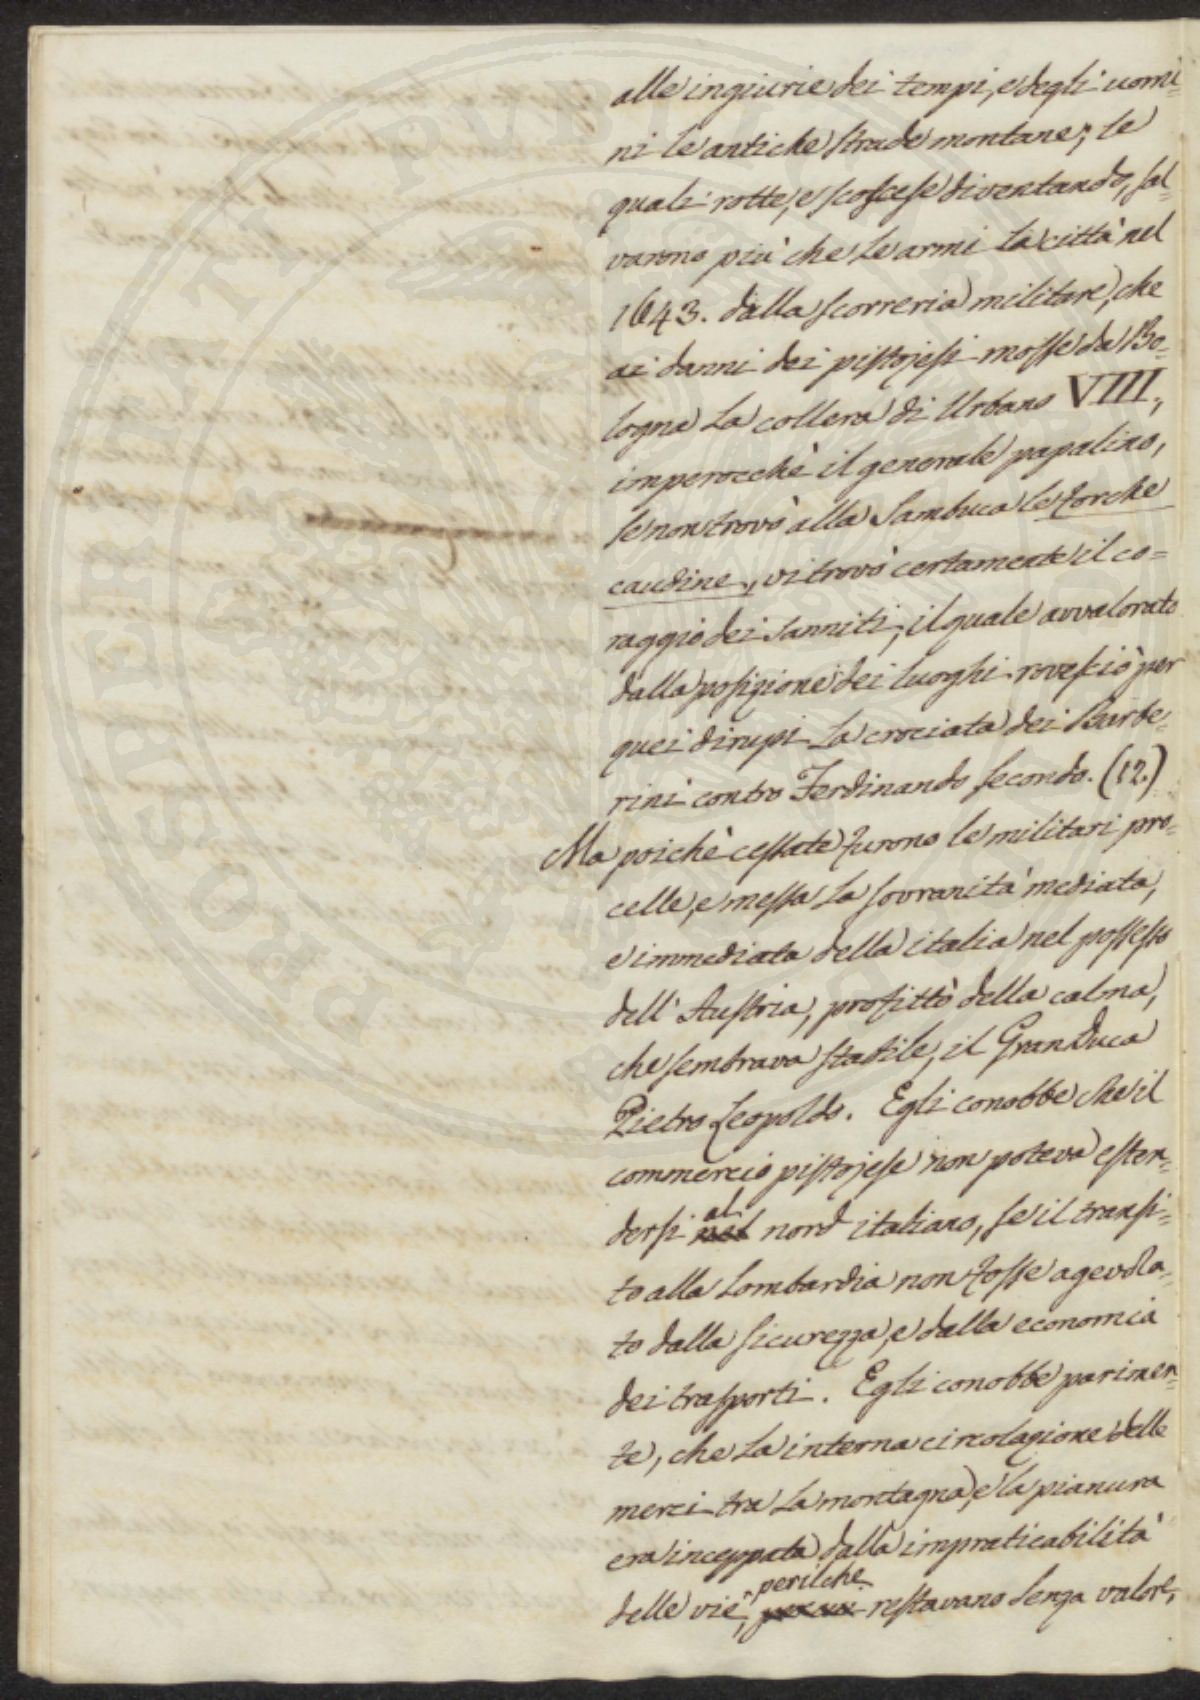 alle ingiurie dei tempi, e degli uomi=
ni le antiche strade montane; le
quali rotte, e scoscese diventando, sal=
varono più che le armi la città nel
1643. dalla scorreria militare, che
ai danni dei pistojesi mosse da Bo=
logna la collera di Urbano VIII.,
imperocchè il generale papalino,
se non trovò alla Sambuca le forche
caudine, vi trovò certamente il co=
raggio dei Sanniti; il quale avvalorato
dalla posizione dei luoghi rovesciò per
quei dirupi la crociata dei Barbe=
rini contro Ferdinando secondo. (12.)
Ma poichè cessate furono le militari pro=
celle, e messa la sovranità mediata,
e immediata della italia nel possesso
dell'Austria, profittò della calma,
che sembrava stabile, il GranDuca
Pietro Leopoldo. Egli conobbe che il
commercio pistojese non poteva esten=
dersi al nord italiano, se il transi=
to alla Lombardia non fosse agevola=
to dalla sicurezza, e dalla economia
dei trasporti. Egli conobbe parimen=
te, che la interna circolazione delle
merci tra la montagna, e la pianura
era inceppata dalla impraticabilità
delle vie, perilche restavano senza valore,
PROSPERITATI PUBLICAE